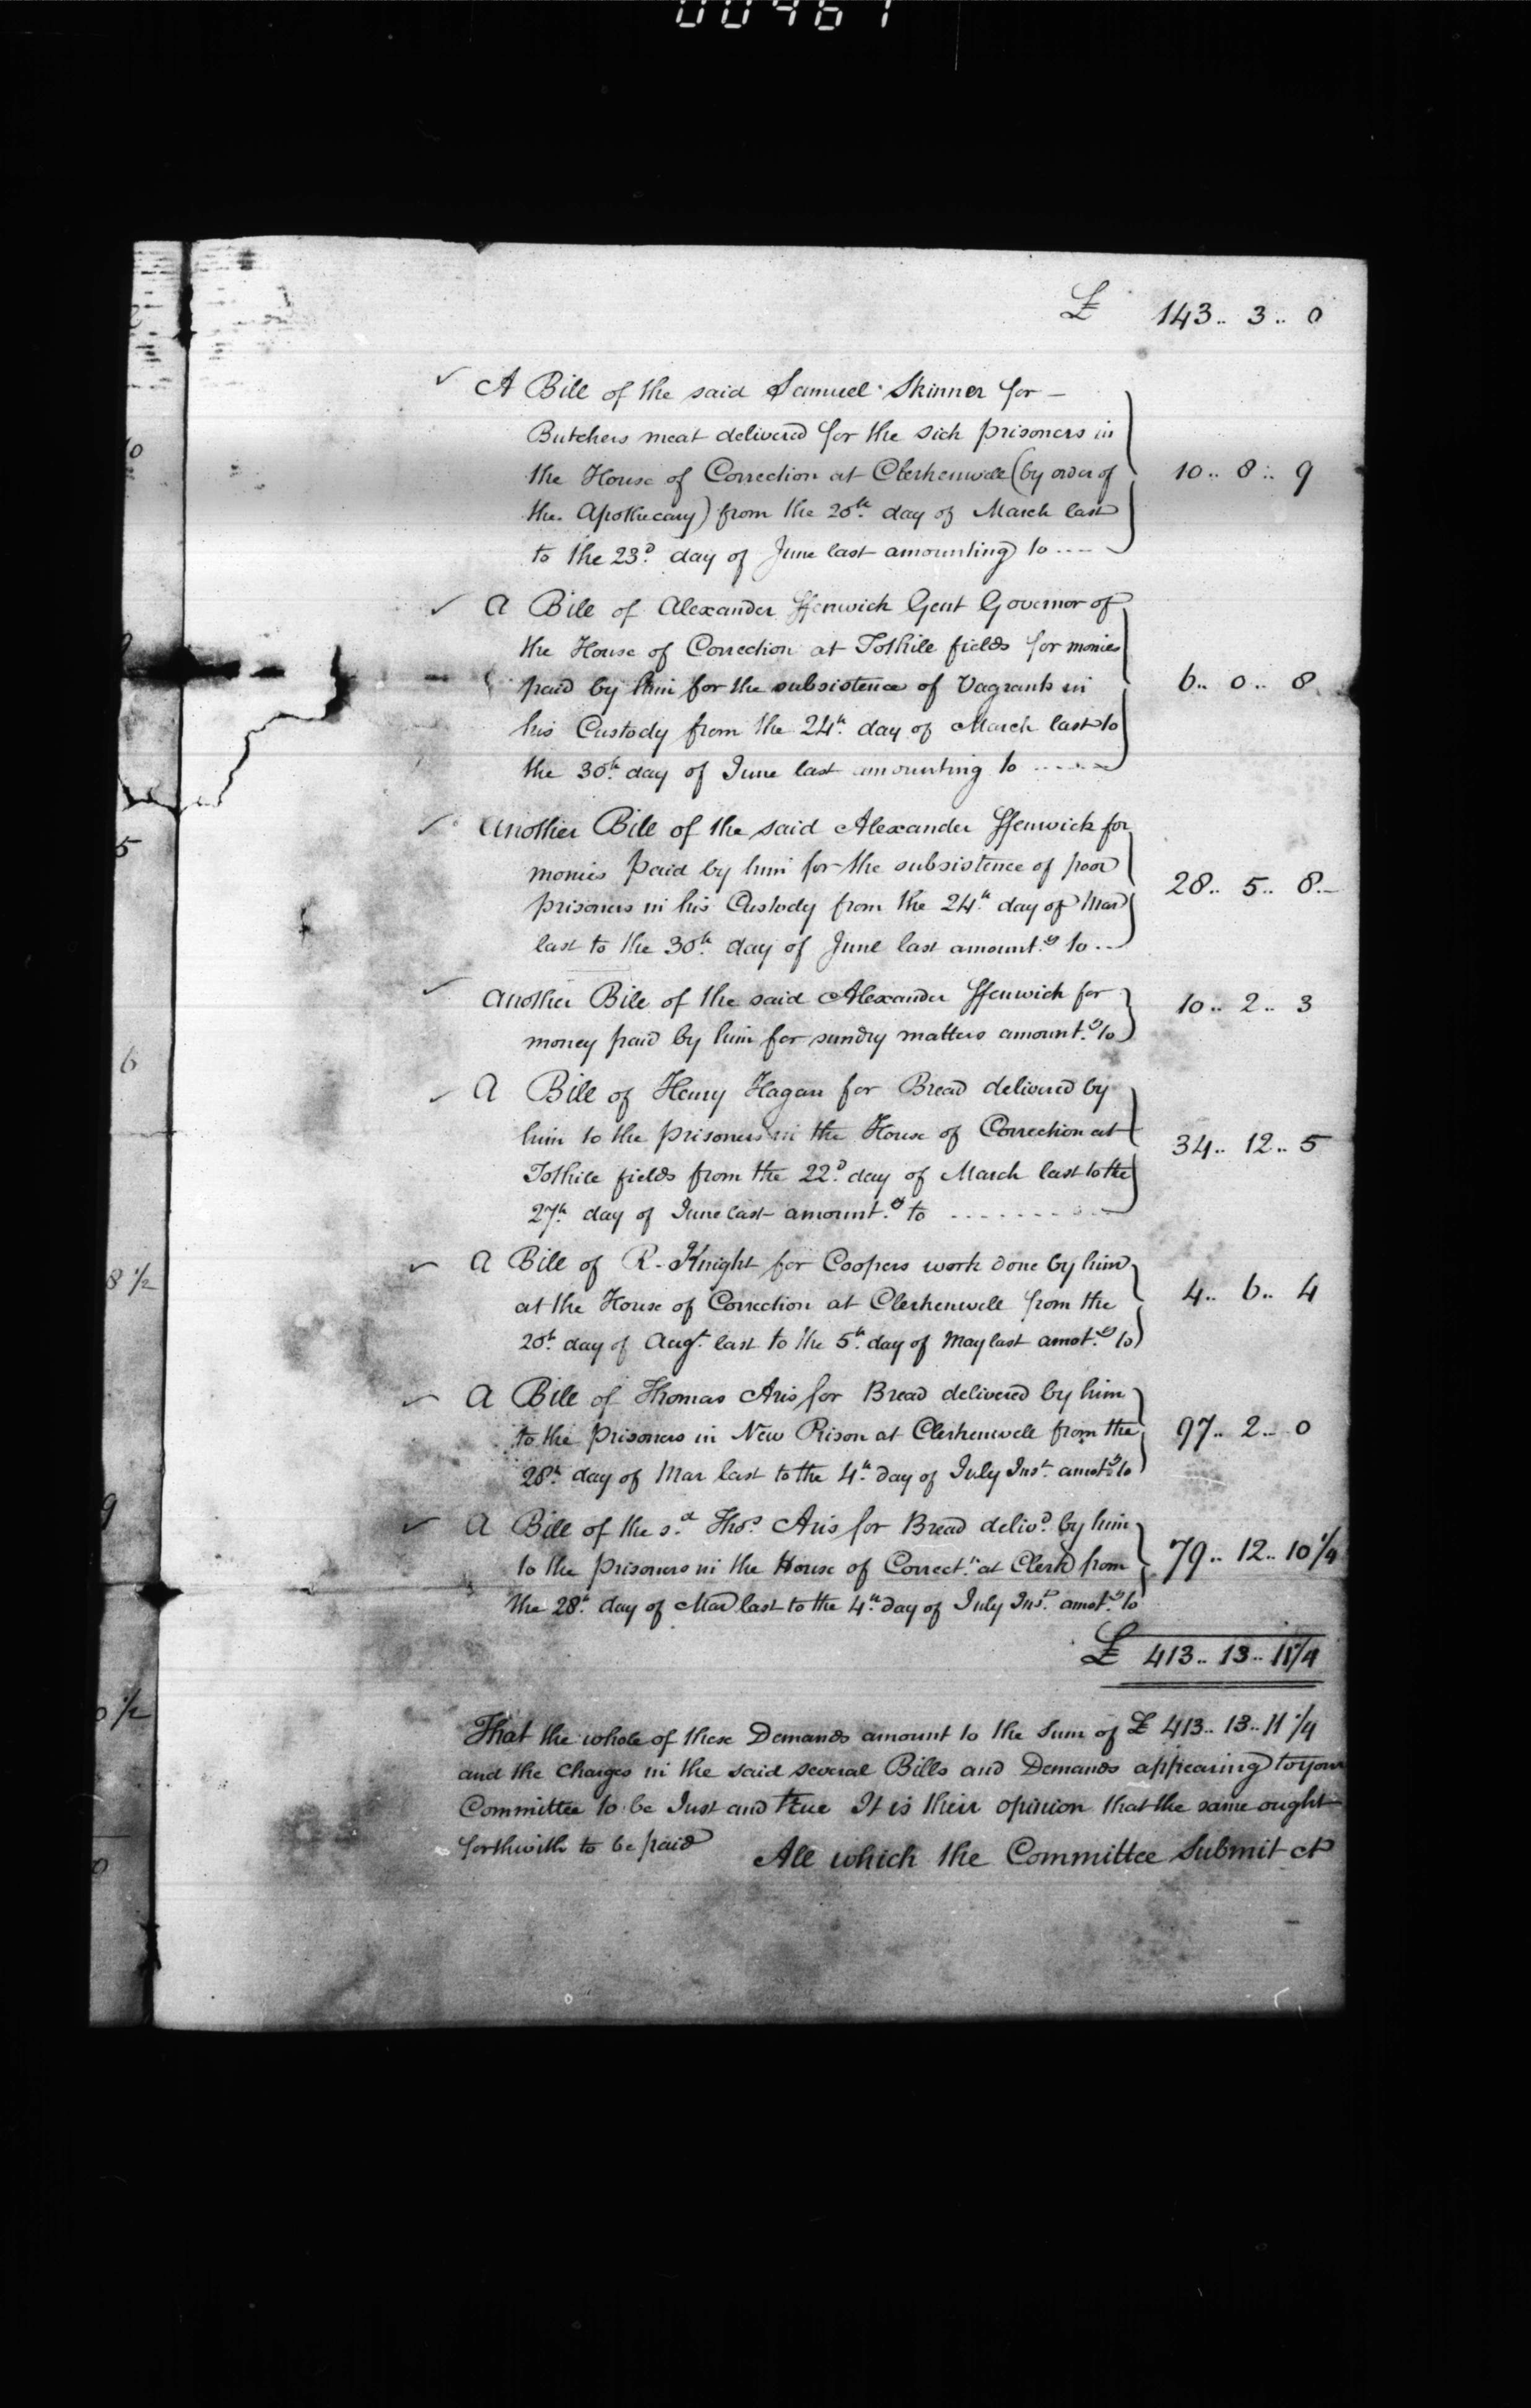 00461
£ 143.. 3.. 0
✓ A Bill of the said Samuel Skinner for —
Butchers meat delivered for the sick prisoners in
the House of Correction at Clerkenwell (by order of 10.. 8.. 9
the Apothecary) from the 20th. day of March last
to the 23d. day of June last amounting to ....
✓ A Bill of Alexander Ffenwick Gent Governor of
the House of Correction at Tothill fields for monies
paid by him for the subsistence of Vagrants in 6.. 0.. 8
his Custody from the 24th. day of March last to
the 30th. day of June last amounting to .....
✓ Another Bill of the said Alexander Ffenwick for
monies paid by him for the subsistence of poor 28.. 5.. 8..
prisoners in his Custody from the 24th. day of Mar
last to the 30th. day of June last amount.g to ...
✓ Another Bill of the said Alexander Ffenwick for 10.. 2.. 3
money paid by him for sundry matters amount.g to
✓ A Bill of Henry Hagan for Bread delivered by
him to the prisoners in the House of Correction at 34.. 12.. 5
Tothill fields from the 22d. day of March last to the
27th. day of June last amount.g to ........
✓ A Bill of R. Knight for Coopers work done by him
at the House of Correction at Clerkenwell from the 4.. 6.. 4
20th. day of Augt. last to the 5th. day of May last amot.g to
✓ A Bill of Thomas Aris for Bread delivered by him
to the prisoners in New Prison at Clerkenwell from the 97.. 2.. 0
28th. day of Mar last to the 4th. day of July Inst. amot.g to
✓ A Bill of the s.d Thos. Aris for Bread delivd. by him
to the prisoners in the House of Correct.n at Clerk from 79.. 12.. 10 1/4
the 28th. day of Mar last to the 4th. day of July Inst. amot.g to
£ 413.. 13.. 11 1/4
That the whole of these Demands amount to the Sum of £ 413.. 13.. 11 1/4
and the Charges in the said several Bills and Demands appearing to your
Committee to be Just and true It is their opinion that the same ought
forthwith to be paid All which the Committee Submit &c
0
5
6
8 1/2
9
1/2
0